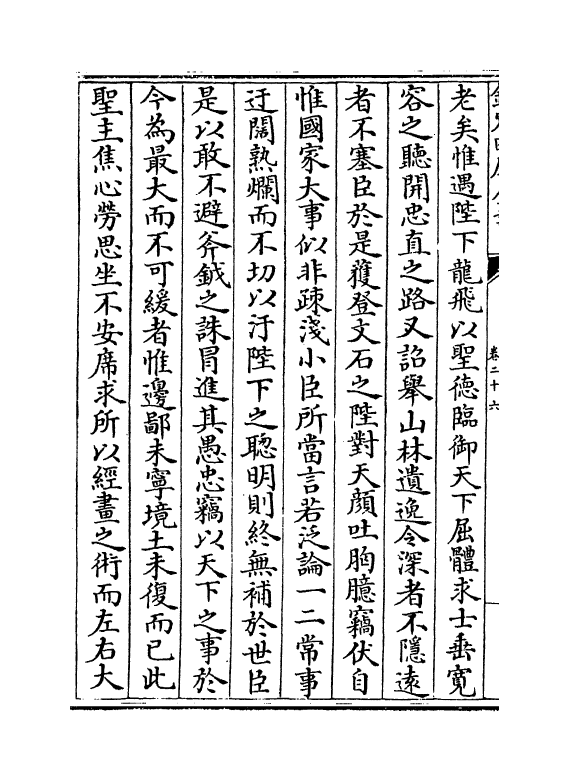 卷二十六
老矣惟遇陛下龍飛以聖德臨御天下屈體求士垂寬
容之聽開忠直之路又詔舉山林遺逸令深者不隱遠
者不塞臣於是獲登文石之陛對天顔吐胸臆竊伏自
惟國家大事似非疎淺小臣所當言若泛論一二常事
迂闊熟爛而不切以汙陛下之聰明則終無補於世臣
是以敢不避斧鉞之誅冒進其愚忠竊以天下之事於
今為最大而不可緩者惟邊鄙未寧境土未復而已此
聖主焦心勞思坐不安席求所以經畫之術而左右大